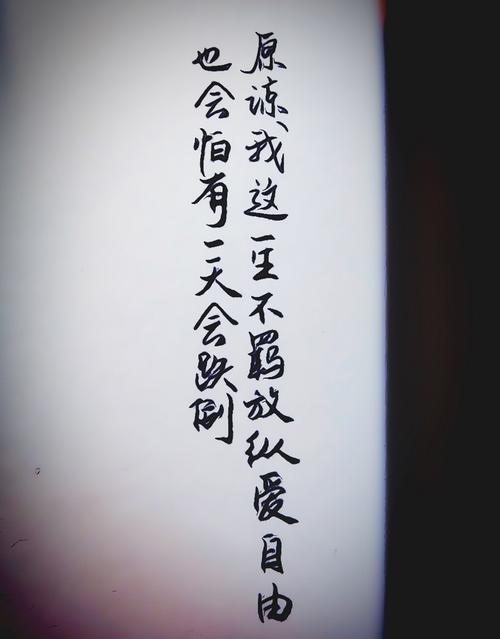 原谅我这一生不羁放纵爱自由
也会怕有一天会跌倒